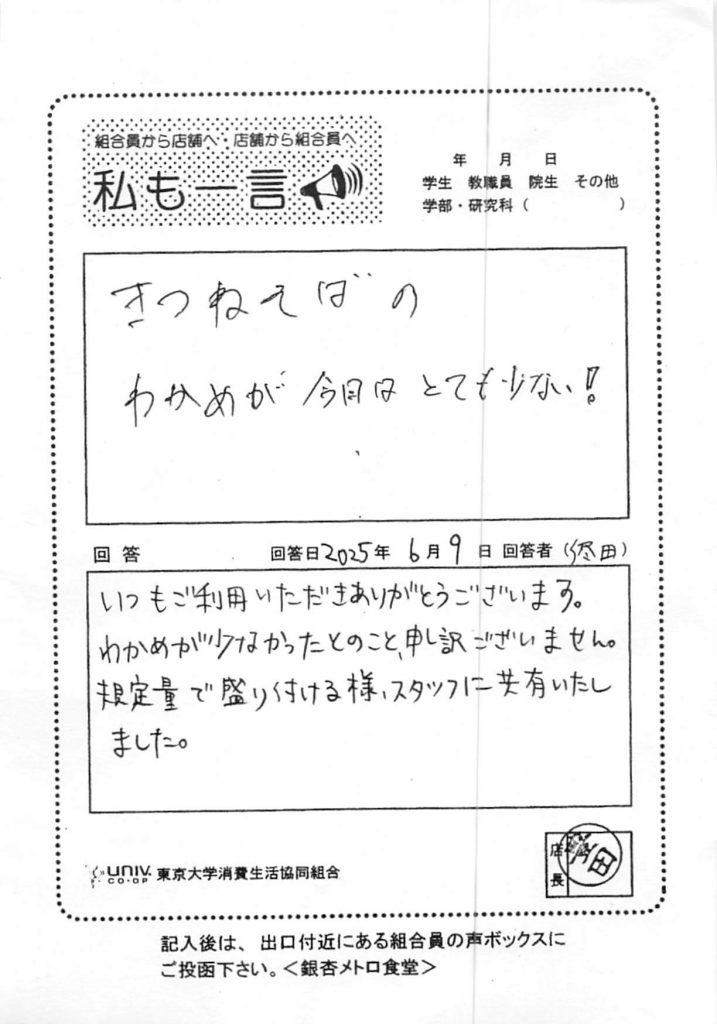 組合員から店舗へ・店舗から組合員へ
私も一言
年 月 日
学生 教職員 院生 その他
学部・研究科（ ）
きつねそばの
わかめが 今日は とても少ない!
回答 回答日2025年 6月9日 回答者（ 田）
いつもご利用いただきありがとうございます。
わかめが少なかったとのこと、申し訳ございません。
規定量で盛り付ける様、スタッフに共有いたし
ました。
店長 田
UNIV. CO-OP 東京大学消費生活協同組合
記入後は、出口付近にある組合員の声ボックスに
ご投函下さい。＜銀杏メトロ食堂＞